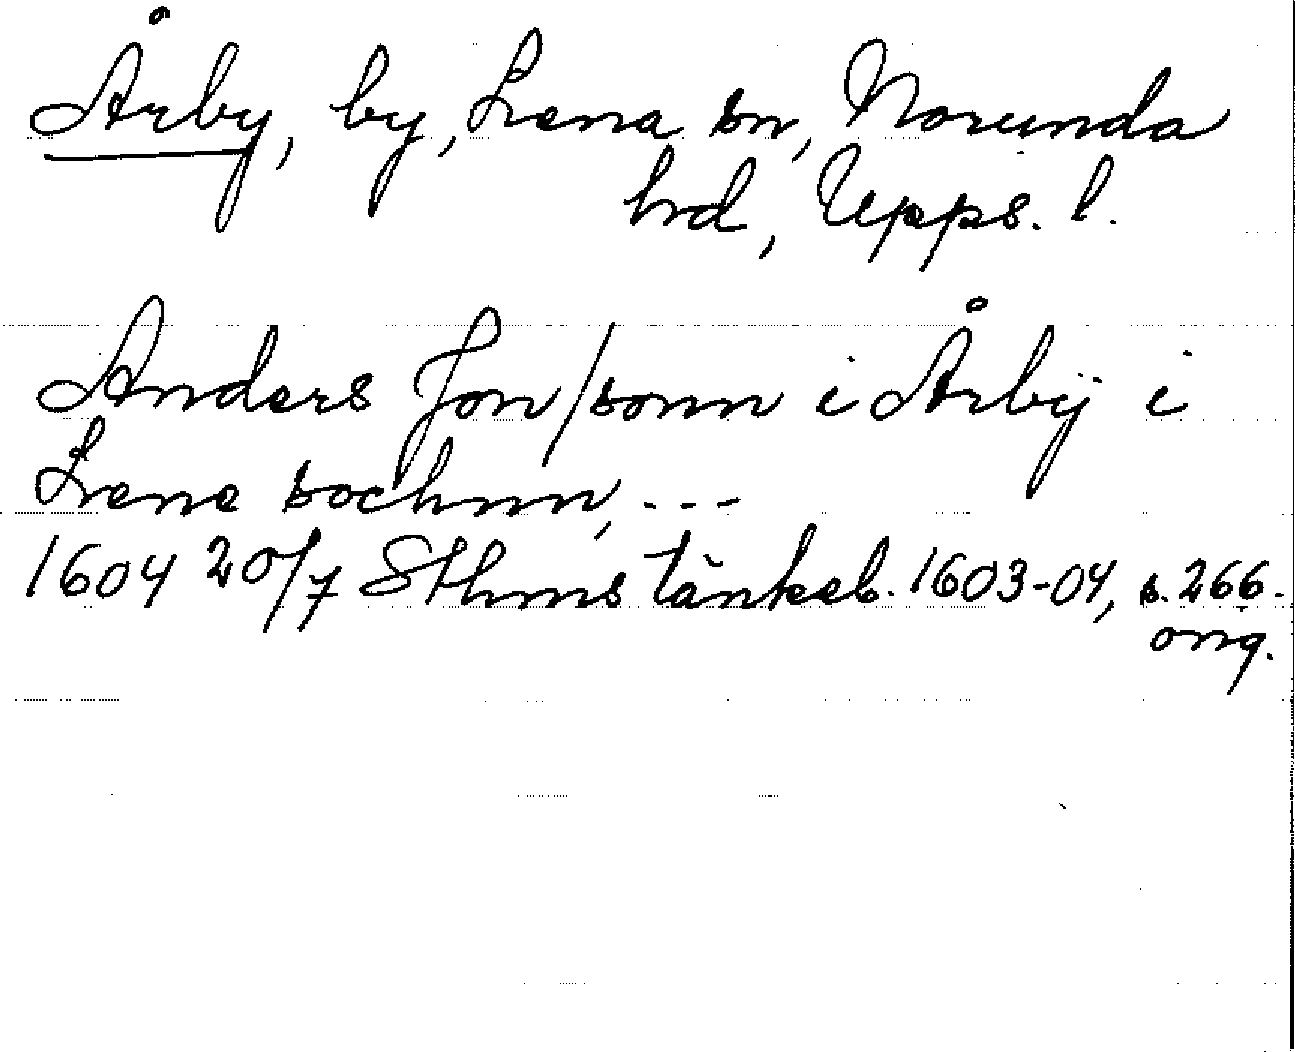 Årby, by, Lena sn, Norunda
hrd, Upps. l.
Anders Jon/sonn i Årbÿ i
Lene sochnn, ---
1604 20/7 Sthms tänkeb. 1603-04, s. 266.
orig.